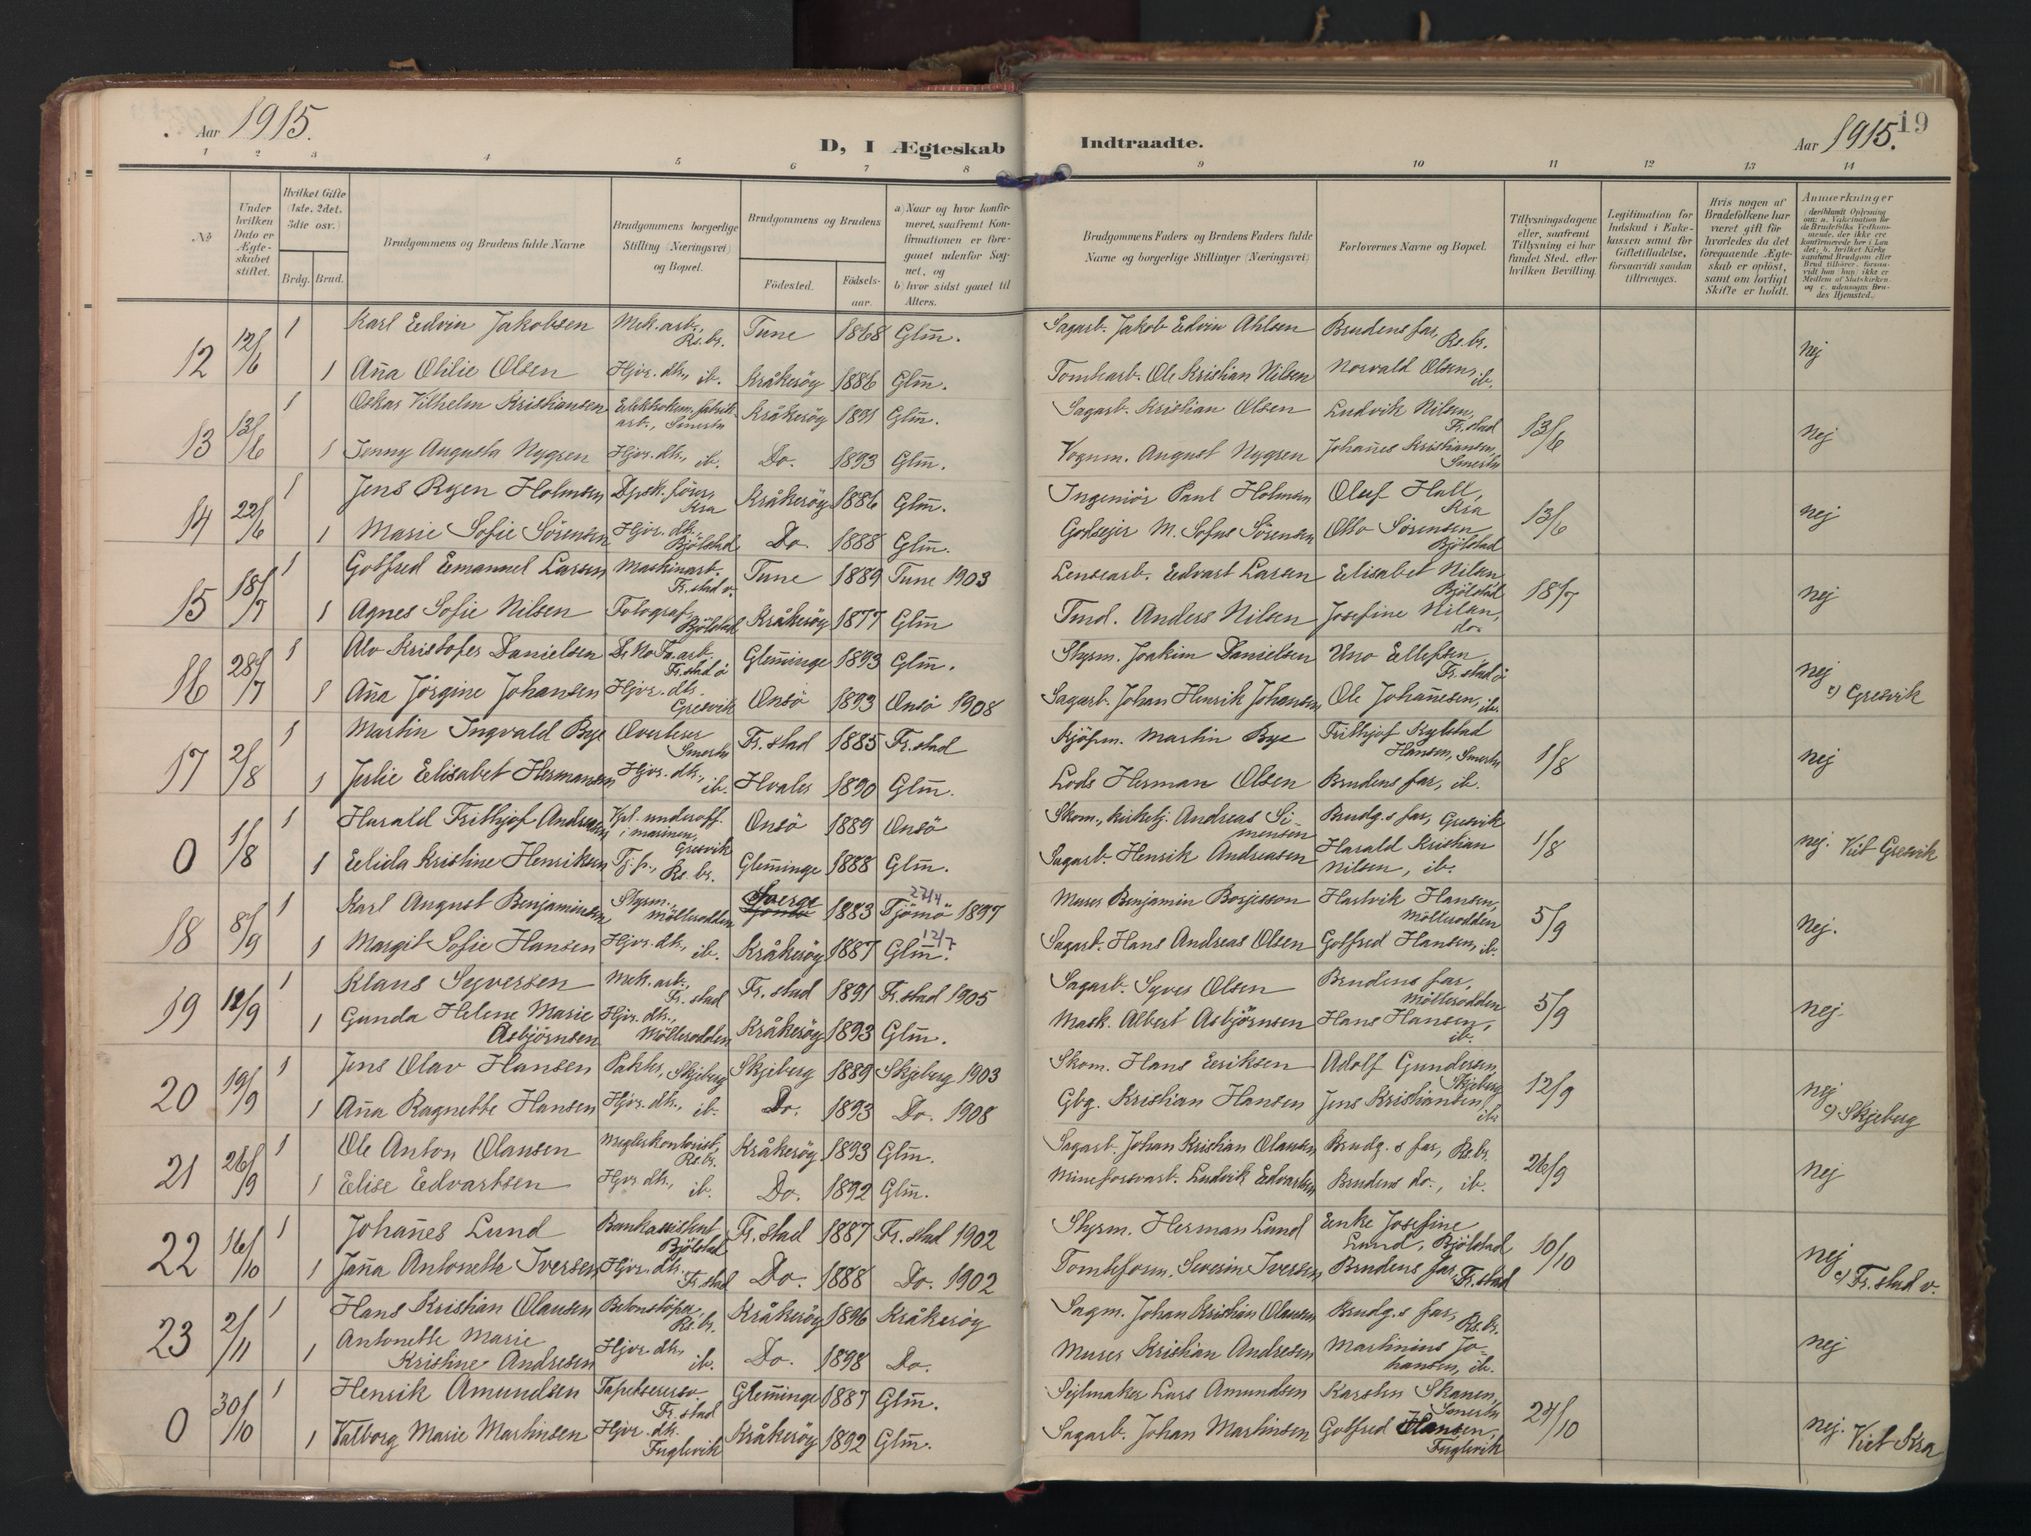 Aar 1915.
D, I Ægteskab Indtraadte.
Aar 1915.
19
1 2 3 4 5 6 7 8 9 10 11 12 13 14
№
Under hvilken Dato er Ægteskabet stiftet.
Hvilket Gifte (1ste, 2det, 3die osv.)
Brdg. Brud.
Brudgommens og Brudens fulde Navne
Brudgommens borgerlige Stilling (Næringsvei) og Bopæl.
Brudgommens og Brudens
Fødested. Fødselsaar.
a) Naar og hvor konfirmeret, saafremt Konfirmationen er foregaaet udenfor Sognet, og
b) hvor sidst gaaet til Alters.
Brudgommens Faders og Brudens Faders fulde Navne og borgerlige Stillinger (Næringsvei)
Forlovernes Navne og Bopæl.
Tillysningsdagene eller, saafremt Tillysning ei har fundet Sted, efter hvilken Bevilling.
Legitimation for Indskud i Enkekassen samt for Giftetilladelse, forsaavidt saadan tiltrænges.
Hvis nogen af Brudefolkene har været gift før hvorledes da det foregaaende Ægteskab er opløst, samt om lovligt Skifte er holdt.
Anmærkninger
12 12/6 1 Karl Edvin Jakobsen Mek. arb., Rs. br. Tune 1868 Glm. Sagarb. Jakob Edvin Ahlsen Brudens far, Rs. br. nej
1 Aña Otilie Olsen Hjvr. dtr., ib. Kråkerøy 1886 Glm. Tomtearb. Ole Kristian Nilsen Norvald Olsen, ib.
13 13/6 1 Oskar Vilhelm Kristiansen Elektrokem. fabrikarb., Smertu Kråkerøy 1891 Glm. Sagarb. Kristian Olsen Ludvik Nilsen, Fr. stad 13/6 nej
1 Jenny Augusta Nygren Hjvr. dtr., ib. Do. 1893 Glm. Vognm. August Nygren Johañes Kristiansen, Smertu
14 22/6 1 Jens Ryen Holmsen Dpsk. fører, Kra Kråkerøy 1886 Glm. Ingeniør Paul Holmsen Oluf Hall, Kra 13/6 nej
1 Marie Sofie Sørensen Hjvr. dtr. Bjølstad Do. 1888 Glm. Godsejer M. Sofus Sørensen Otto Sørensen Bjølstad
15 18/7 1 Gotfred Emanuel Larsen Maskinarb. Fr. stad v. Tune 1889 Tune 1903 Lensearb. Edvart Larsen Elisabet Nilsen Bjølstad 18/7 nej
1 Agnes Sofie Nilsen Fotograf Bjølstad Kråkerøy 1877 Glm Tmd. Anders Nilsen Josefine Nilsen, do.
16 28/7 1 Alv Kristofer Danielsen Fr. stad ø Glem̄inge 1893 Glm. Styrm. Joakim Danielsen Uno Ellefsen Fr. stad ø nej
1 Aña Jørgine Johansen Hjvr. dtr. Gresvik Onsø 1893 Onsø 1908 Sagarb. Johan Henrik Johansen Ole Johañesen, ib. c) Gresvik
17 2/8 1 Martin Ingvald Bye Overlærer Smertu Fr. stad 1885 Fr. stad Kjøpm. Martin Bye Frithjof Rylstad Hansen, Smertu 1/8 nej
1 Julie Elisabet Hermansen Hjvr. dtr., ib. Hvaler 1890 Glm. Lods Herman Olsen Brudens far, ib.
0 1/8 1 Harald Frithjof Andresen Kvl. underoff. i marinen, Gresvik Onsø 1889 Onsø Skom., kirketj. Andreas Simensen Brudg.s far, Gresvik 1/8 nej. Viet Gresvik
1 Elida Kristine Henriksen Tj. p., Rs. br. Glem̄inge 1888 Glm. Sagarb. Henrik Andreasen Harald Kristian Nilsen, ib.
18 8/9 1 Karl August Benjaminsen Styrm., Møllerodden Sverge 1883 Tjømø 22/4 1897 Murer Benjamin Børjesson Hartvik Hansen, Møllerodden 5/9 Nej.
1 Margit Sofie Hansen Hjvr. dtr., ib. Kråkerøy 1887 Glm. 12/7 Sagarb. Hans Andreas Olsen Gotfred Hansen, ib.
19 12/9 1 Klaus Syversen Mek. arb., Fr. stad Fr. stad 1891 Fr. stad 1905 Sagarb. Syver Olsen Brudens far, Møllerodden 5/9 nej.
1 Gunda Helene Marie Asbjørnsen Hjvr. dtr., Møllerodden Kråkerøy 1893 Glm. Mask. Albert Asbjørnsen Hans Hansen, ib.
20 19/9 1 Jens Olav Hansen Pakker, Skjeberg Skjeberg 1889 Skjeberg 1903 Skom. Hans Eriksen Adolf Gundersen Skjeberg 12/9 nej
1 Aña Ragnette Hansen Hjvr. dtr., ib. Do. 1893 Do. 1908 Gbg. Kristian Hansen Jens Kristiansen, ib. c) Skjeberg
21 26/9 1 Ole Anton Olausen Meglerkontorist, Rs. br. Kråkerøy 1893 Glm. Sagarb. Johan Kristian Olausen Brudg.s far, Rs. br. 26/9 nej
1 Elise Edvartsen Hjvr. dtr., ib. Do. 1892 Glm. Mineforsvarb. Ludvik Edvartsen Brudens do., ib.
22 16/10 1 Johañes Lund Bankassistent Bjølstad Fr. stad 1887 Fr. stad 1902 Styrm. Herman Lund Enke Josefine Lund, Bjølstad 10/10 nej
1 Jaña Antonette Iversen Hjvr. dtr. Fr. stad Do. 1888 Do. 1902 Tomteform. Severin Iversen Brudens far, Fr. stad c) Fr. stad v.
23 2/11 1 Hans Kristian Olausen Betonstøper Rs. br. Kråkerøy 1896 Kråkerøy Sagm. Johan Kristian Olausen Brudg.s far, Rs. br. nej
1 Antonette Marie Kristine Andresen Hjvr. dtr., ib. Do. 1898 Do. Murer Kristian Andresen Martinius Johansen, ib.
0 30/10 1 Henrik Amundsen Tapetserersv. Fr. stad Glem̄inge 1887 Glm. Sejlmaker Lars Amundsen Karsten Skanen, Smertu 24/10 nej. Viet Kra
1 Valborg Marie Martinsen Hjvr. dtr. Fuglevik Kråkerøy 1892 Glm. Sagarb. Johan Martinsen Gotfred Hansen, Fuglevik